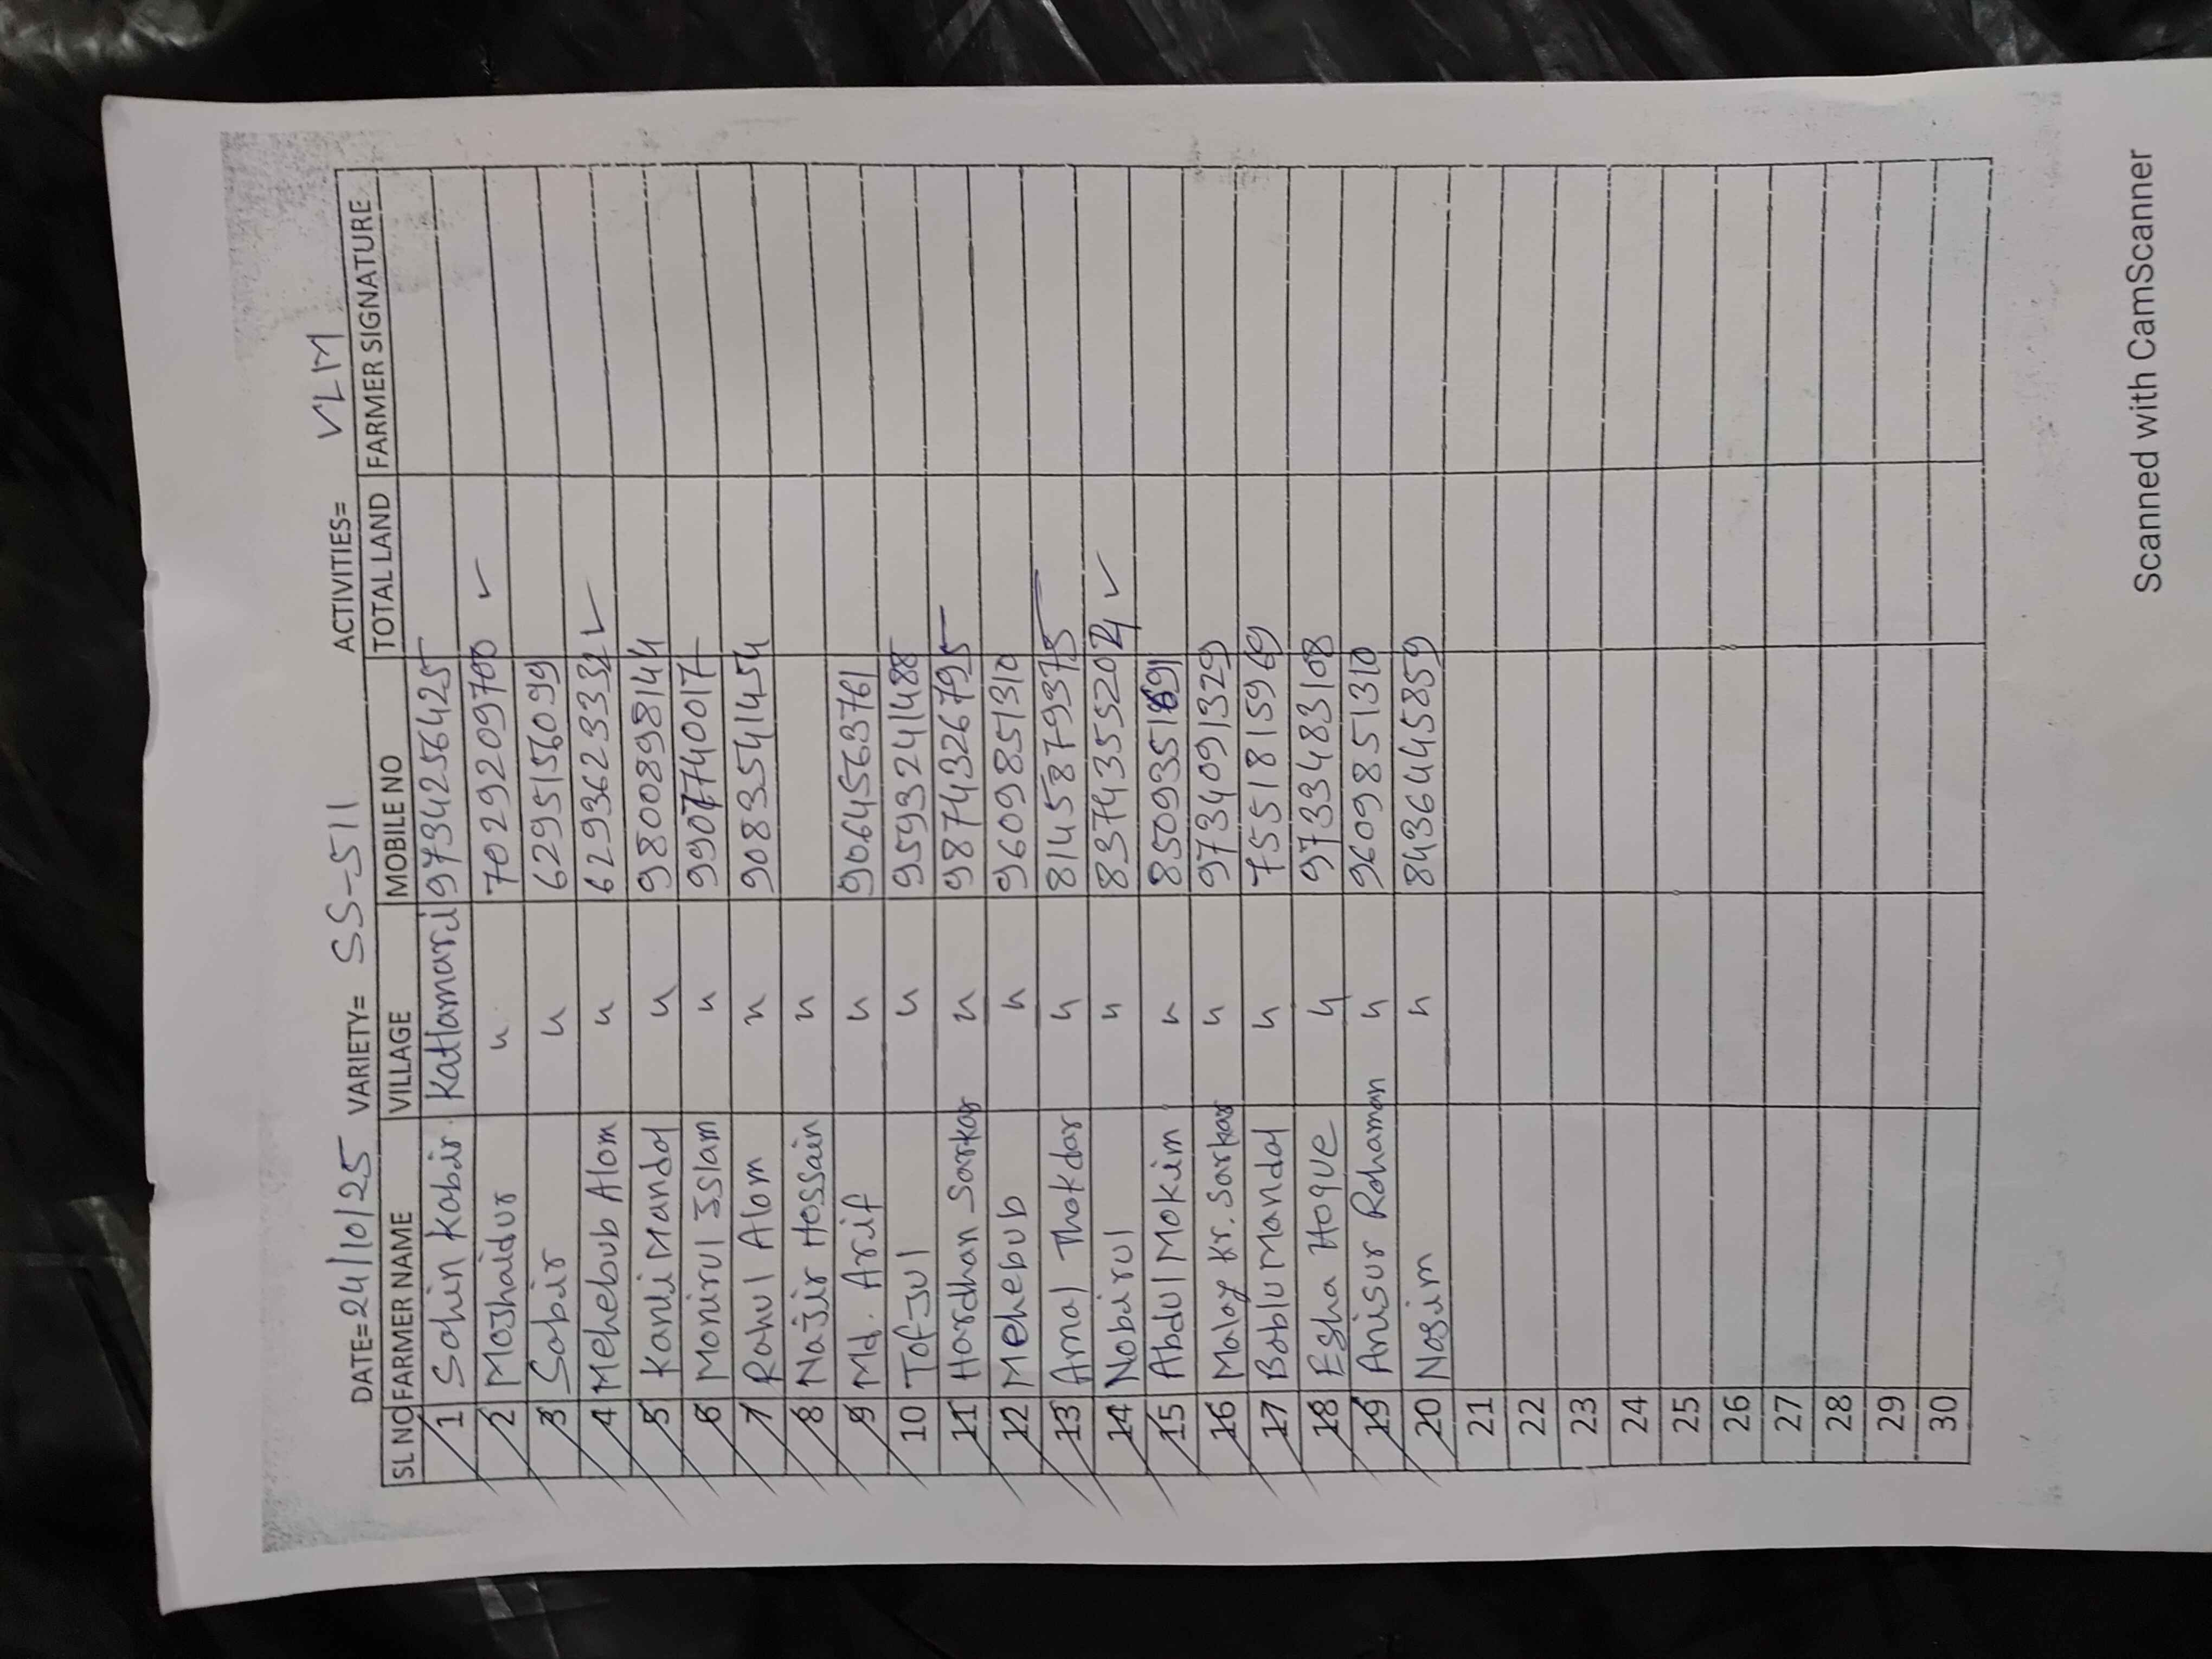 DATE=24/10/25 VARIETY= SS-511 ACTIVITIES= VLM
SL NO FARMER NAME VILLAGE MOBILE NO TOTAL LAND FARMER SIGNATURE
1 Sahin Kabir Katlamari 9734256425
2 Moshaidur " 7029209700 ✓
3 Sabir " 6295156099
4 Mehebub Alom " 6293623332 ✓
5 Kamli Mandal " 9800898144
6 Monirul Islam " 9907740017
7 Rahul Alom " 9083541454
8 Najir Hossain "
9 Md. Arif " 9064563761
10 Tofjul " 9593241488
11 Hardhan Sarkar " 9874326795
12 Mehebub " 9609851310
13 Amal Thokdar " 8145879375
14 Nobirul " 8374355202 ✓
15 Abdul Mokim " 8509351691
16 Malay Kr. Sarkar " 9734091329
17 Bablu Mandal " 7551815969
18 Esha Hoque " 9733483108
19 Anisur Rohaman " 9609851310
20 Nasim " 8436445859
21
22
23
24
25
26
27
28
29
30
Scanned with CamScanner